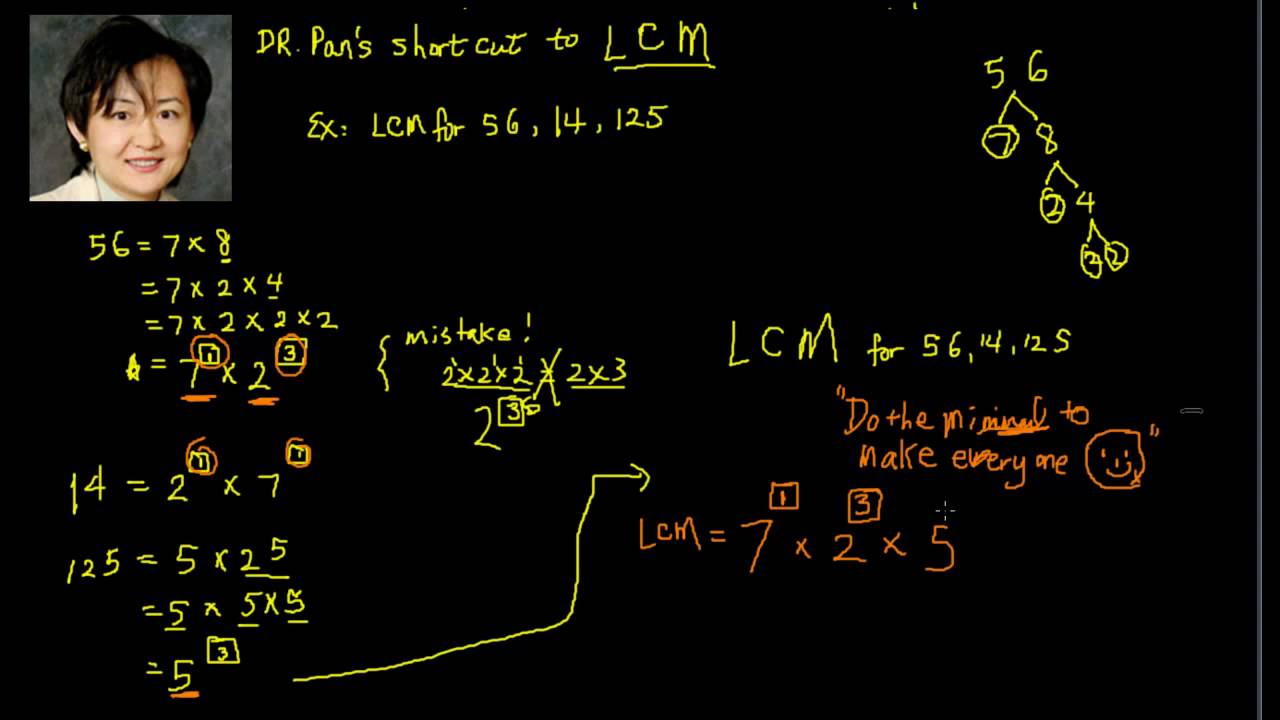 DR. Pan's shortcut to LCM
Ex: LCM for 56, 14, 125
56
7 8
2 4
2 2
56 = 7 × 8
= 7 × 2 × 4
= 7 × 2 × 2 × 2
= 7^1 × 2^3
mistake!
2^1 × 2^1 × 2^1 × 2 × 3
2^3
14 = 2^1 × 7^1
125 = 5 × 25
= 5 × 5 × 5
= 5^3
LCM for 56, 14, 125
"Do the minimal to
make everyone "
LCM = 7^1 × 2^3 × 5